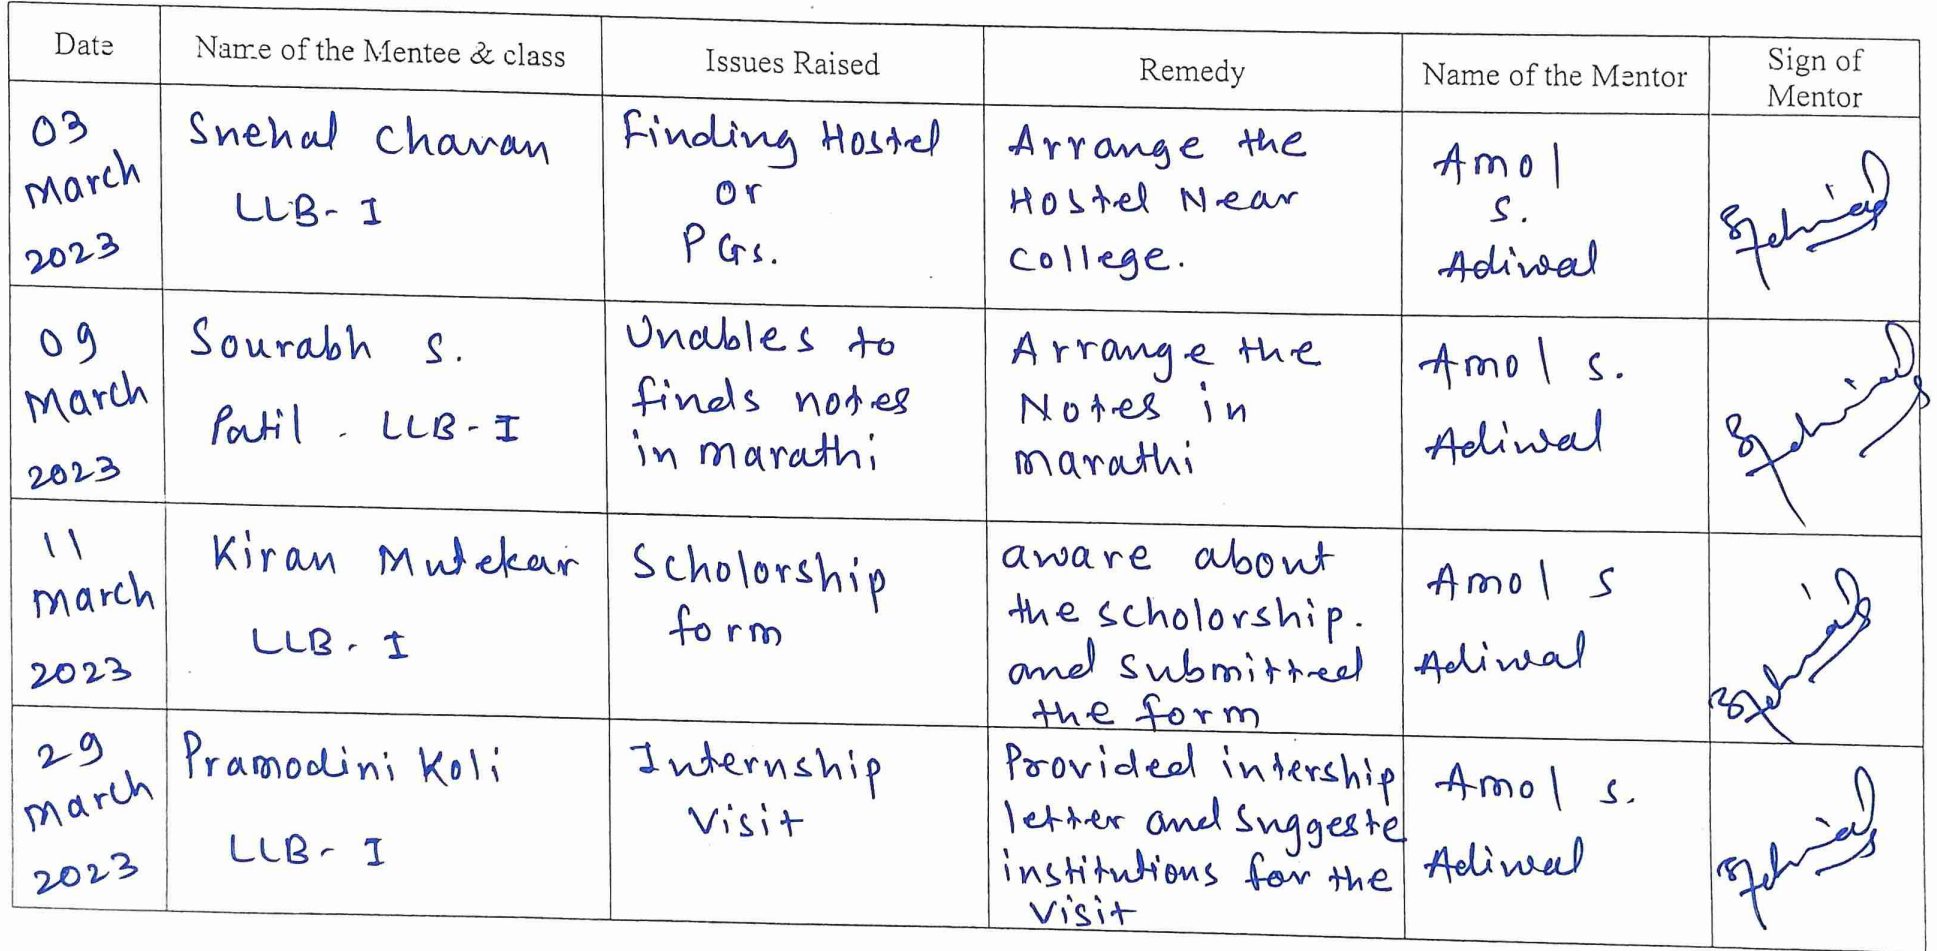 Date
Name of the Mentee & class
Issues Raised
Remedy
Name of the Mentor
Sign of
Mentor
03
March
2023
Snehal Chavan
LLB-I
Finding Hostel
or
PGs.
Arrange the
Hostel Near
College.
Amol
S.
Adiwal
09
March
2023
Sourabh S.
Patil. LLB-I
Unables to
finds notes
in marathi
Arrange the
Notes in
marathi
Amol S.
Adiwal
11
March
2023
Kiran Mutekar
LLB-I
Scholorship
form
aware about
the scholorship.
and submitted
the form
Amol S
Adiwal
29
March
2023
Pramodini Koli
LLB-I
Internship
Visit
Provided intership
letter and suggeste
institutions for the
visit
Amol S.
Adiwal